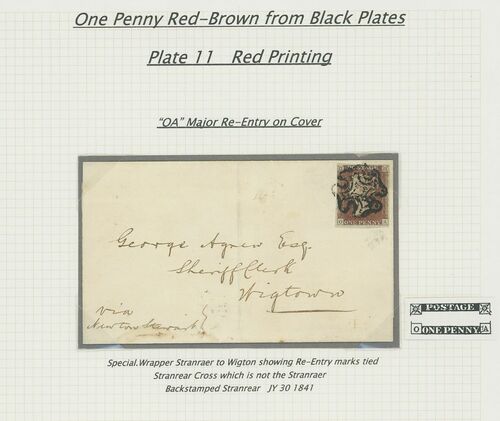 One Penny Red-Brown from Black Plates
Plate 11 Red Printing
"OA" Major Re-Entry on Cover
O ONE PENNY A
George Agnew Esq.
Sheriff Clerk
Wigtown
via
Newton Stewart
POSTAGE
O ONE PENNY A
Special.Wrapper Stranraer to Wigton showing Re-Entry marks tied
Stranrear Cross which is not the Stranraer
Backstamped Stranrear JY 30 1841